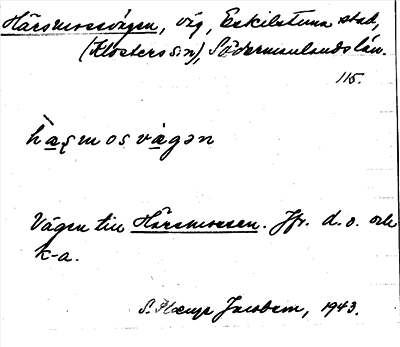 Härsmossvägen, väg, Eskilstuna stad,
(Klosters sn), Södermanlands län.
115.
hàşmosvàgən
Vägen till Härsmossen. Jfr. d.o. och
k-a.
S. Jacobsen, 1943.